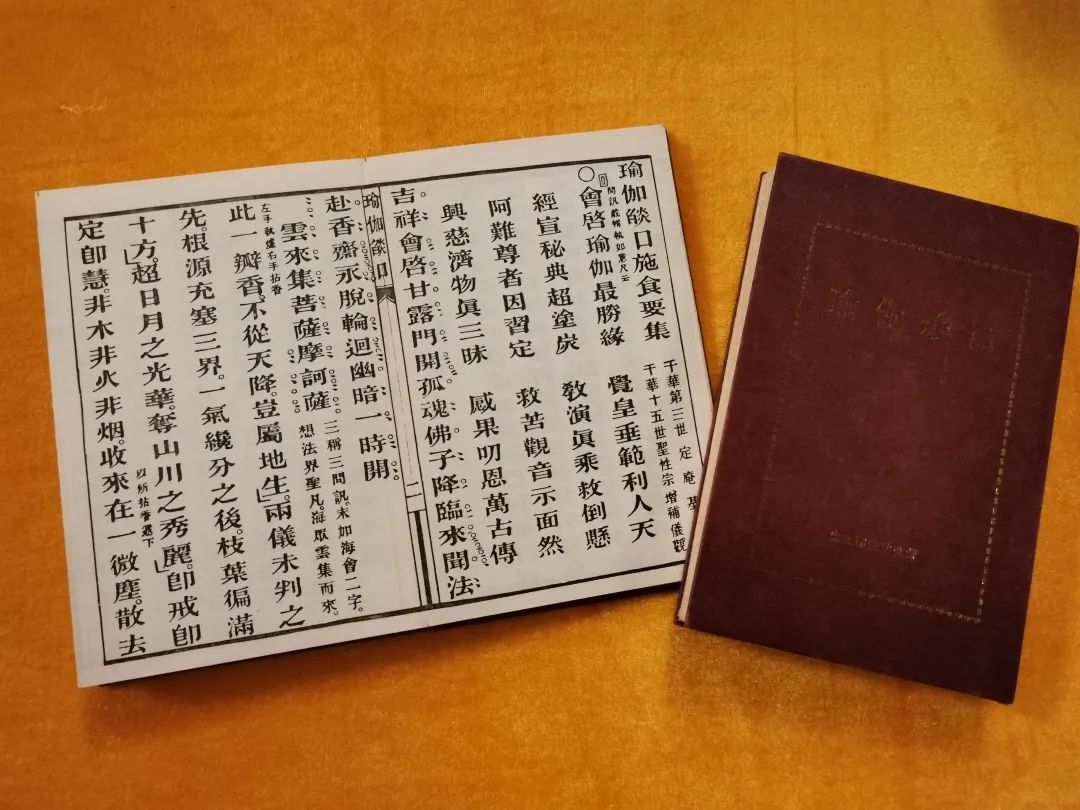 瑜伽燄口施食要集
千華第三世 定庵基
千華十五世聖性宗 增補儀觀
問訊畢輒執如意尺云
○會啓瑜伽最勝緣 覺皇垂範利人天
經宣秘典超塗炭 教演眞乘救倒懸
阿難尊者因習定 救苦觀音示面然
興慈濟物眞三昧 感果叨恩萬古傳
吉祥會啓甘露門開孤魂佛子降臨來聞法
瑜伽燄口 二
赴香齋永脫輪迴幽暗一時開
雲來集菩薩摩訶薩 三稱三問訊。末如海會二字。
想法界聖凡。海眾雲集而來。
左手執爐右手拈香
此一瓣香。不從天降。豈屬地生。兩儀未判之
先。根源充塞三界。一氣纔分之後。枝葉徧滿
十方。超日月之光華。奪山川之秀麗。卽戒卽
以所拈香選下
定卽慧。非木非火非烟。收來在一微塵。散去
瑜伽燄口